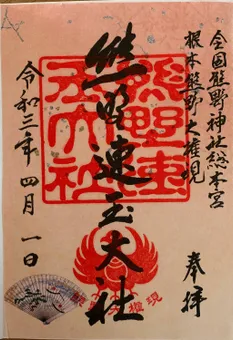 全国熊野神社総本宮
根本熊野大権現
奉拝
熊野速玉大社
令和三年四月一日
熊野速玉大社